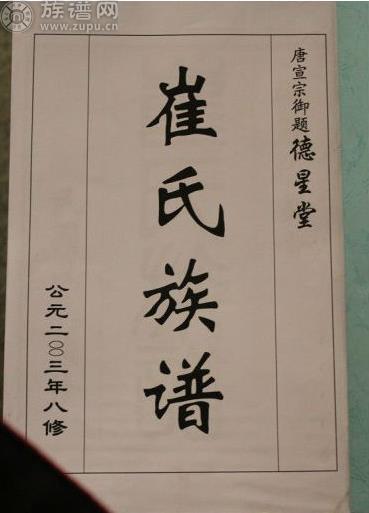 族谱网
www.zupu.cn
唐宣宗御题德星堂
崔氏族谱
公元二〇〇三年八修